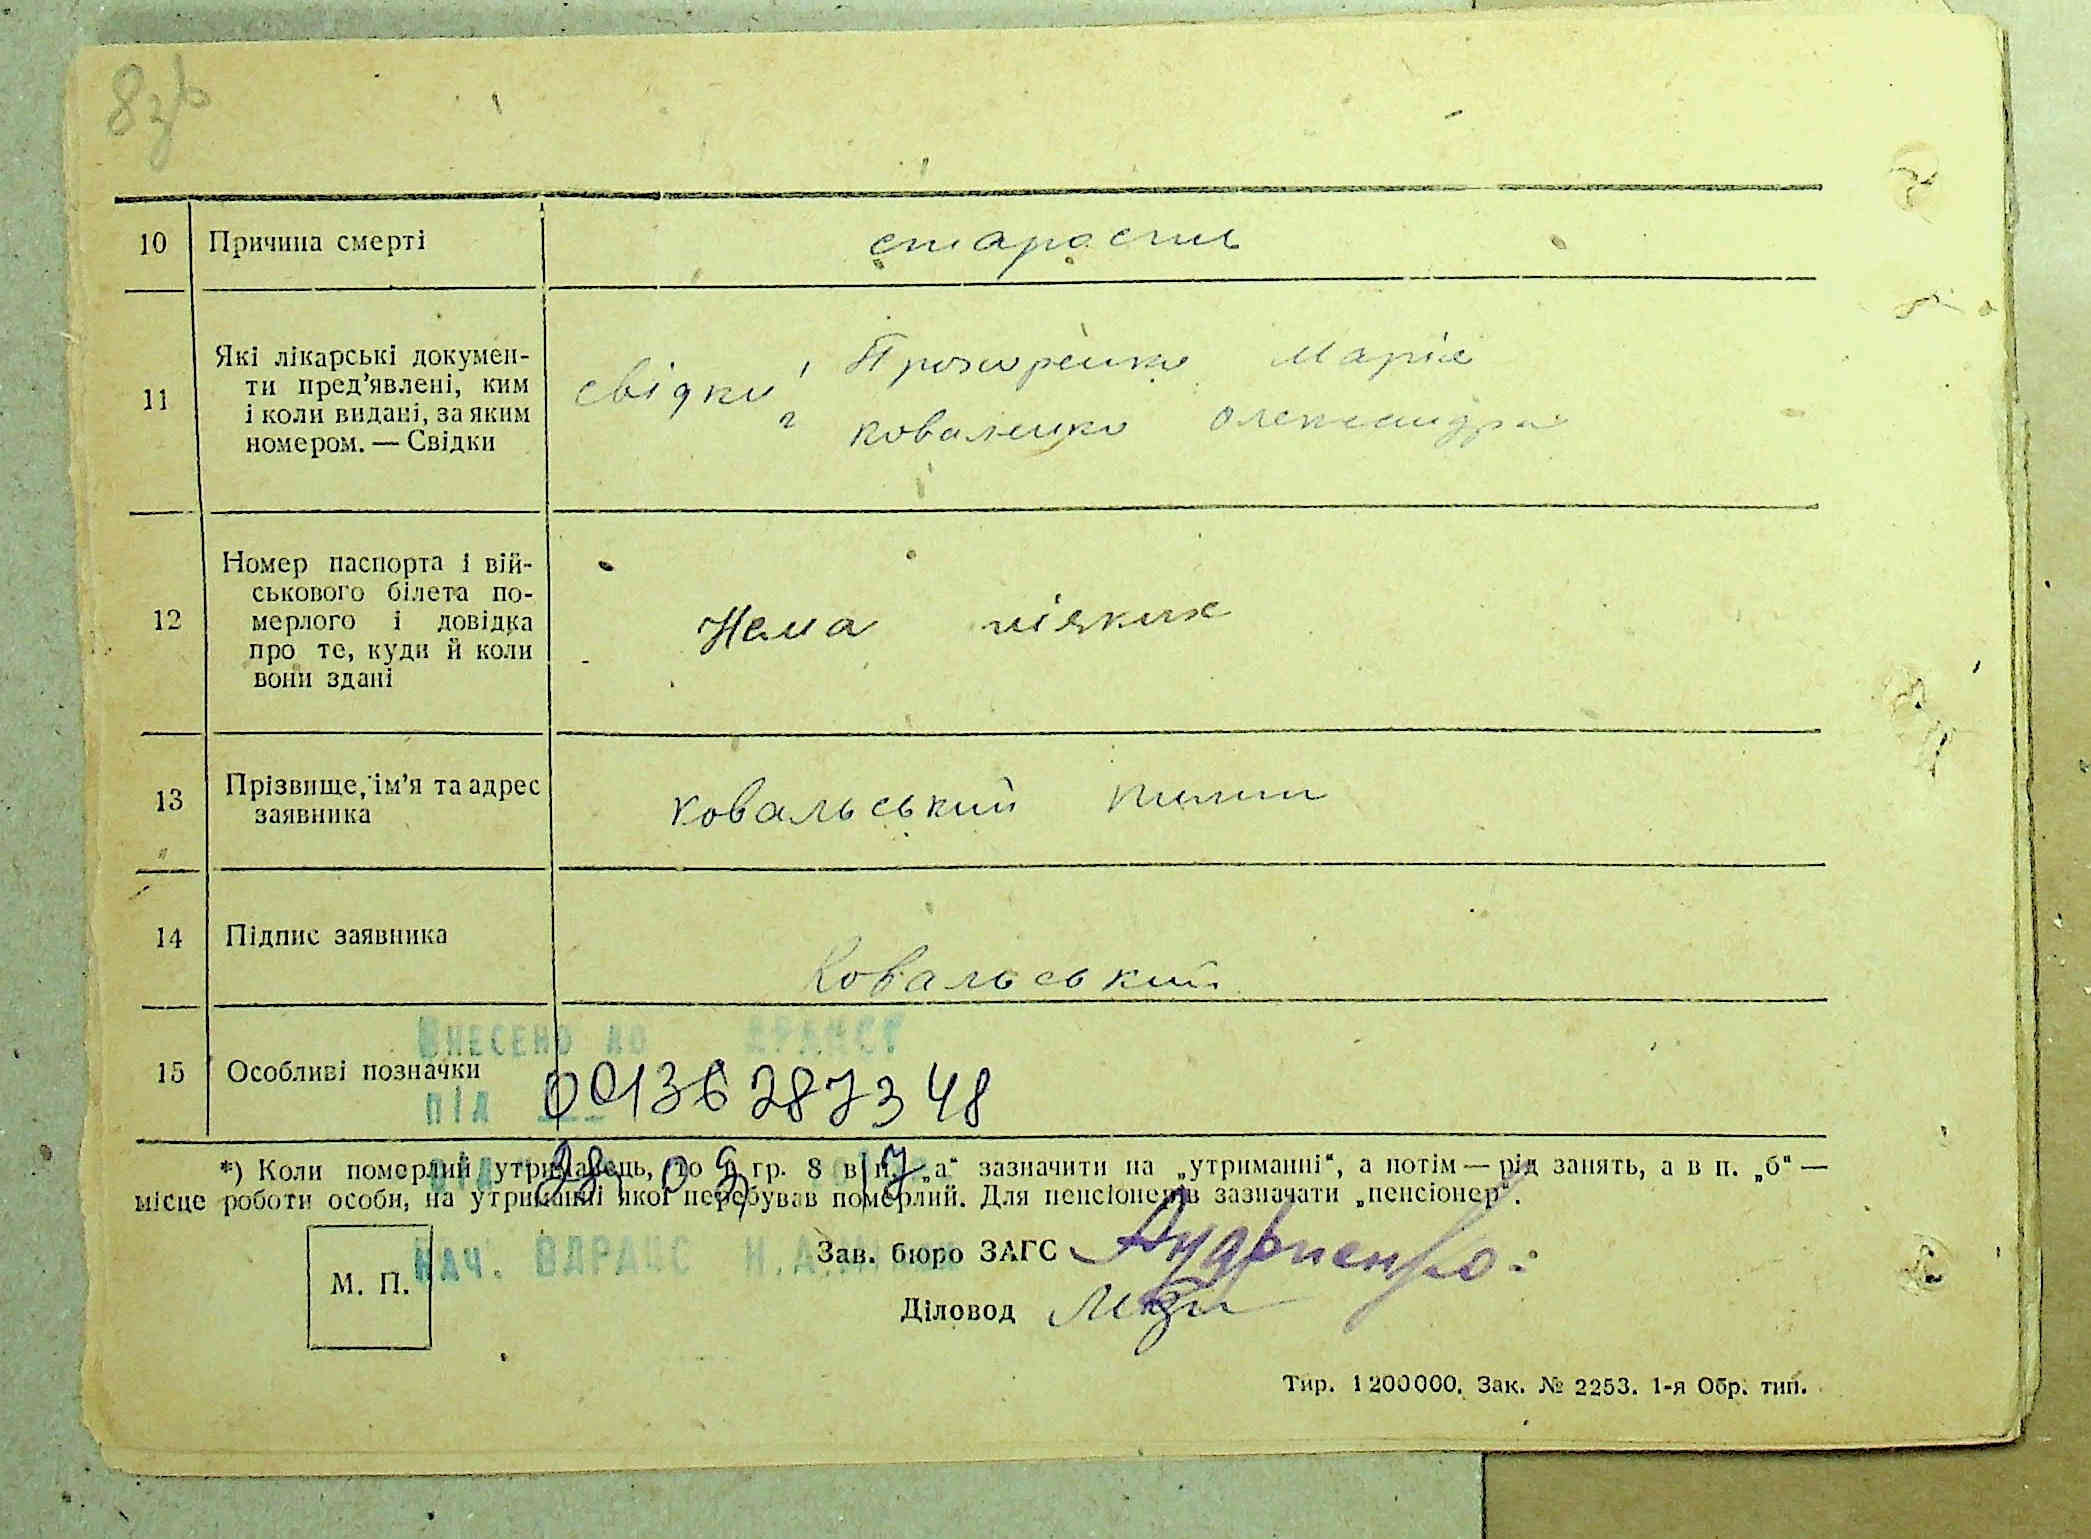 8зв
10 Причина смерті старость
11 Які лікарські докумен-
ти пред’явлені, ким
і коли видані, за яким
номером. — Свідки
свідки Марія
Коваленко Олександра
12 Номер паспорта і вій-
ськового білета по-
мерлого і довідка
про те, куди й коли
вони здані
Нема ніяких
13 Прізвище, ім’я та адрес
заявника
Ковальський Пилип
14 Підпис заявника
Ковальський
ВНЕСЕНО ДО ДРАЦСГ
15 Особливі позначки
ПІД 00136287348
*) Коли померлий утриманець, то в гр. 8 в п. „а“ зазначити на „утриманні“, а потім — рід занять, а в п. „б“ —
місце роботи особи, на утриманні якої перебував померлий. Для пенсіонерів зазначати „пенсіонер“.
28 09 17
НАЧ. ВДРАЦС
Зав. бюро ЗАГС Андриенко
М. П.
Діловод
Тир. 1 200 000. Зак. № 2253. 1-я Обр. тип.